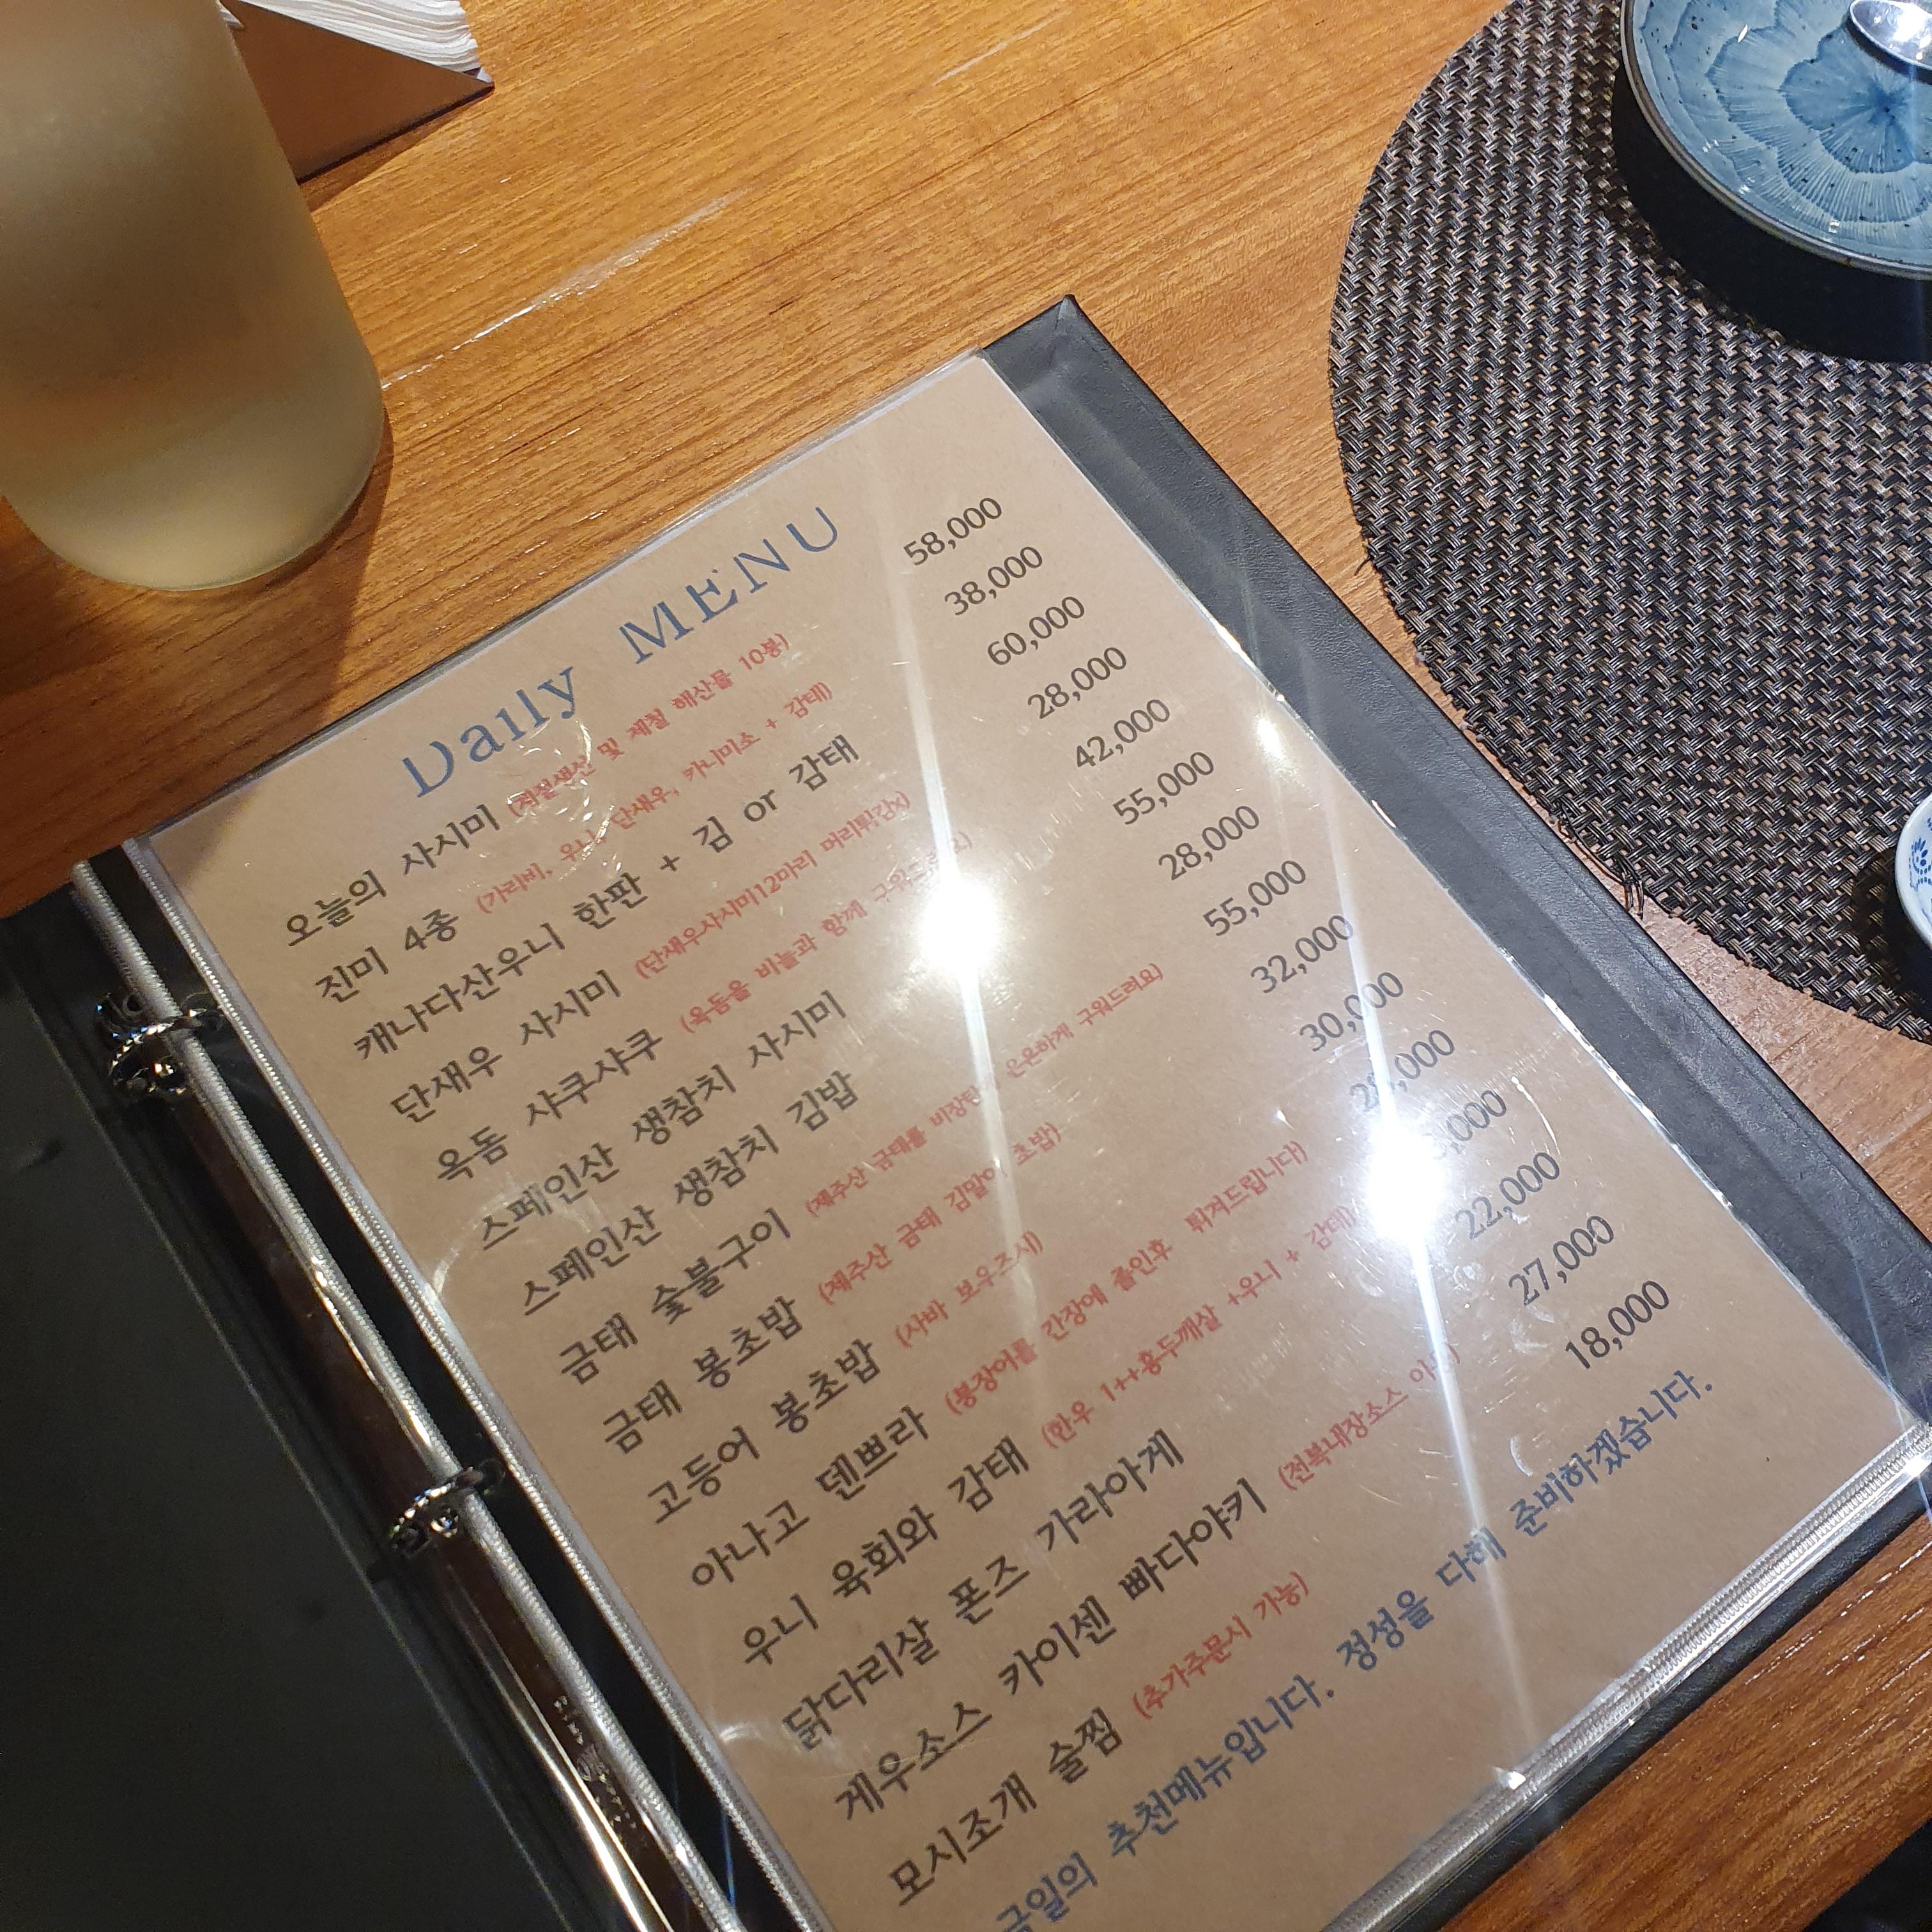 Daily MENU
오늘의 사시미 (제철생선 및 제철 해산물 10종) 58,000
진미 4종 (가리비, 우니, 단새우, 카니미소 + 감태) 38,000
캐나다산우니 한판 + 김 or 감태 60,000
단새우 사시미 (단새우사시미12마리 머리튀김x) 28,000
옥돔 샤쿠샤쿠 (옥돔을 비늘과 함께 구워드려요) 42,000
스페인산 생참치 사시미 55,000
스페인산 생참치 김밥 28,000
금태 숯불구이 (제주산 금태를 비장탄 은은하게 구워드려요) 55,000
금태 봉초밥 (제주산 금태 김말이 초밥) 32,000
고등어 봉초밥 (사바 보우즈시) 30,000
아나고 덴쁘라 (붕장어를 간장에 졸인후 튀겨드립니다)
우니 육회와 감태 (한우 1++홍두깨살 +우니 + 감태)
닭다리살 폰즈 가라아게 22,000
게우소스 카이센 빠다야키 (전복내장소스 27,000
모시조개 술찜 (추가주문시 가능) 18,000
금일의 추천메뉴입니다. 정성을 다해 준비하겠습니다.